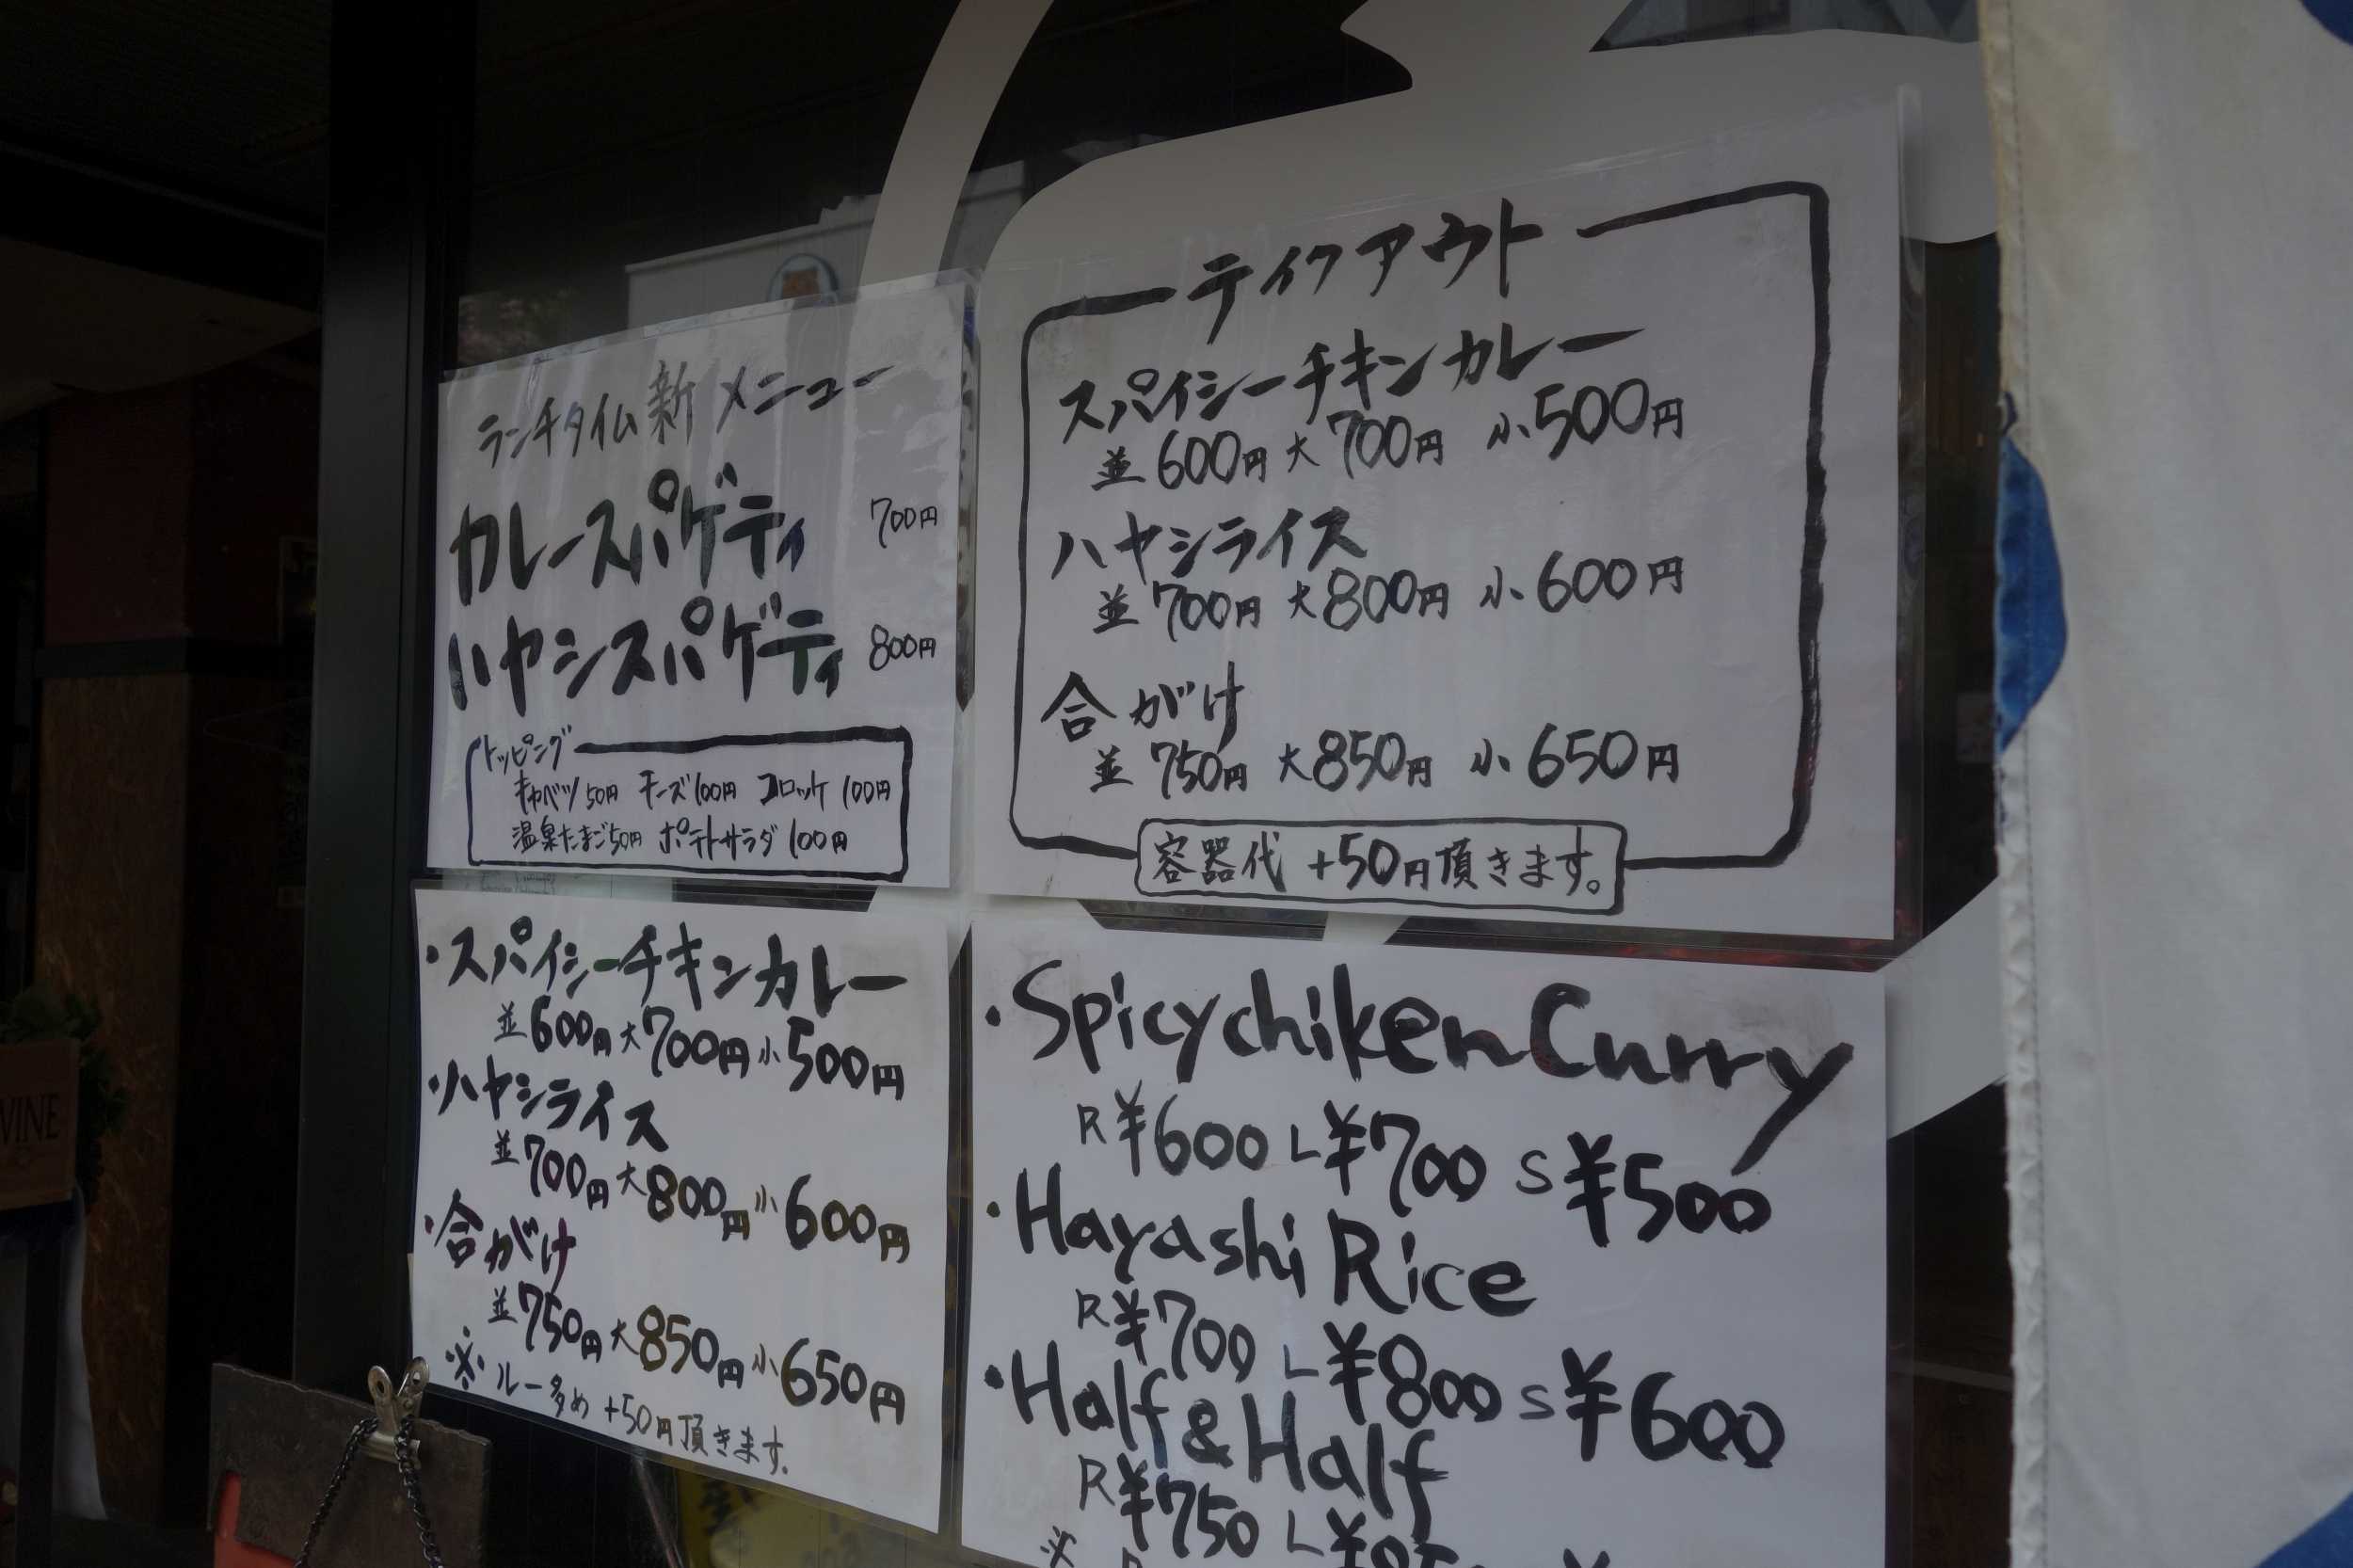 ランチタイム新メニュー
カレースパゲティ 700円
ハヤシスパゲティ 800円
トッピング
キャベツ50円 チーズ100円 コロッケ100円
温泉たまご50円 ポテトサラダ100円
テイクアウト
スパイシーチキンカレー
並600円 大700円 小500円
ハヤシライス
並700円 大800円 小600円
合がけ
並750円 大850円 小650円
容器代 +50円頂きます。
・スパイシーチキンカレー
並600円 大700円 小500円
・ハヤシライス
並700円 大800円 小600円
・合がけ
並750円 大850円 小650円
※ルー多め +50円頂きます。
・Spicy chiken Curry
R¥600 L¥700 S¥500
・Hayashi Rice
R¥700 L¥800 S¥600
・Half & Half
R¥750 L¥
WINE